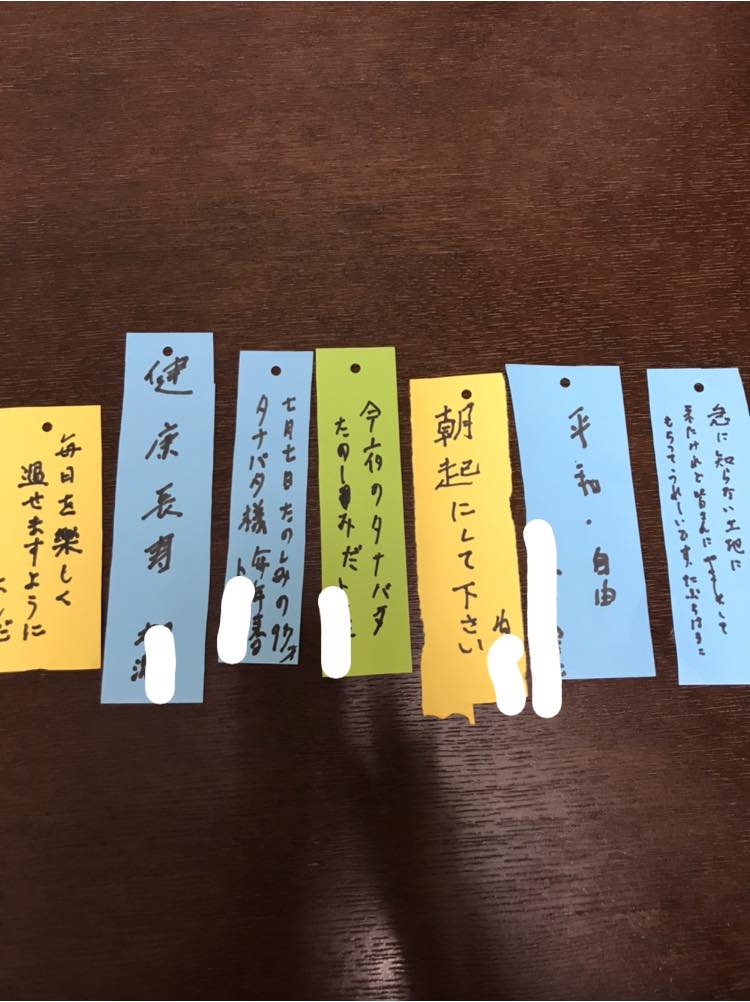 毎日を楽しく
過せますように
健康長寿
七月七日たのしみの97才
タナバタ様毎年春
今夜のタナバタ
たのしみだ
朝起にして下さい
平和・自由
急に知らない土地に
来たけれど皆さんにやさしくして
もらってうれしいです。